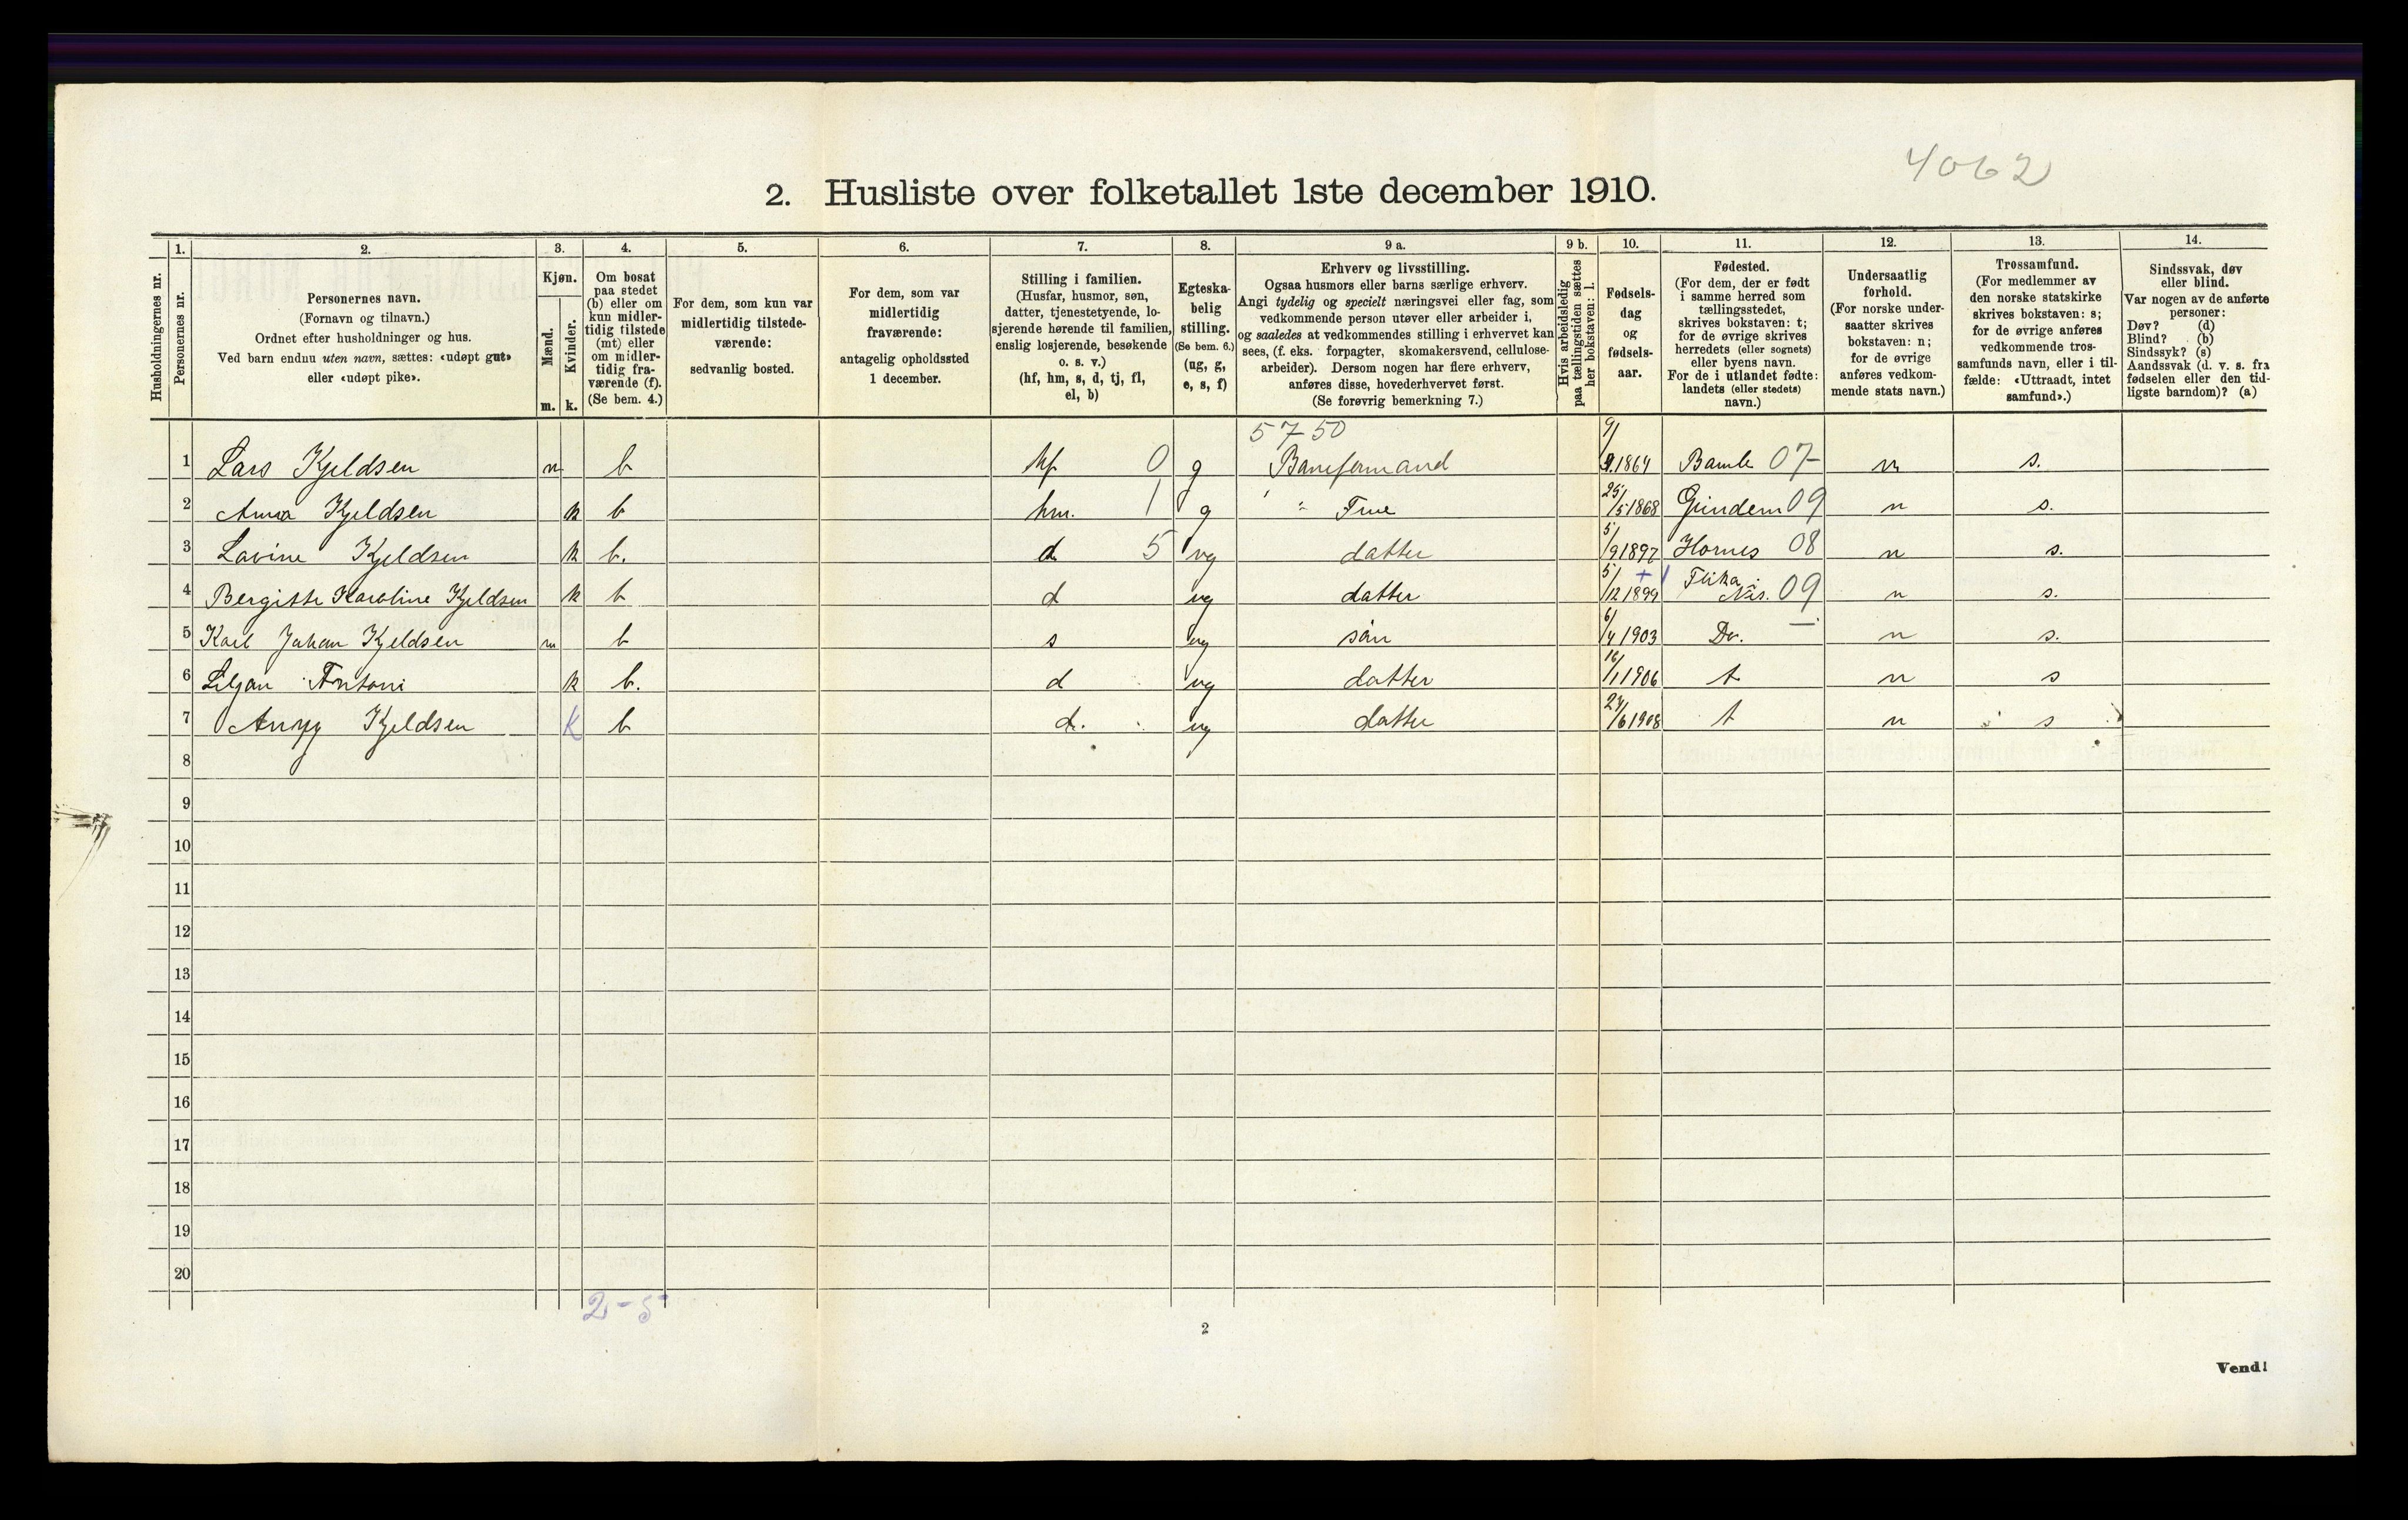 4062
2. Husliste over folketallet 1ste december 1910.
Husholdningernes nr.
1. Personernes nr.
2. Personernes navn. (Fornavn og tilnavn.) Ordnet efter husholdninger og hus. Ved barn endnu uten navn, sættes: «udøpt gut» eller «udøpt pike».
3. Kjøn. Mænd. m. Kvinder. k.
4. Om bosat paa stedet (b) eller om kun midlertidig tilstede (mt) eller om midlertidig fraværende (f). (Se bem. 4.)
5. For dem, som kun var midlertidig tilstedeværende: sedvanlig bosted.
6. For dem, som var midlertidig fraværende: antagelig opholdssted 1 december.
7. Stilling i familien. (Husfar, husmor, søn, datter, tjenestetyende, losjerende hørende til familien, enslig losjerende, besøkende o. s. v.) (hf, hm, s, d, tj, fl, el, b)
8. Egteskabelig stilling. (Se bem. 6.) (ug, g, e, s, f)
9 a. Erhverv og livsstilling. Ogsaa husmors eller barns særlige erhverv. Angi tydelig og specielt næringsvei eller fag, som vedkommende person utøver eller arbeider i, og saaledes at vedkommendes stilling i erhvervet kan sees, (f. eks. forpagter, skomakersvend, cellulosearbeider). Dersom nogen har flere erhverv, anføres disse, hovederhvervet først. (Se forøvrig bemerkning 7.)
9 b. Hvis arbeidsledig paa tællingstiden sættes her bokstaven: l.
10. Fødselsdag og fødselsaar.
11. Fødested. (For dem, der er født i samme herred som tællingsstedet, skrives bokstaven: t; for de øvrige skrives herredets (eller sognets) eller byens navn. For de i utlandet fødte: landets (eller stedets) navn.)
12. Undersaatlig forhold. (For norske undersaatter skrives bokstaven: n; for de øvrige anføres vedkommende stats navn.)
13. Trossamfund. (For medlemmer av den norske statskirke skrives bokstaven: s; for de øvrige anføres vedkommende trossamfunds navn, eller i tilfælde: «Uttraadt, intet samfund».)
14. Sindssvak, døv eller blind. Var nogen av de anførte personer: Døv? (d) Blind? (b) Sindssyk? (s) Aandssvak (d. v. s. fra fødselen eller den tidligste barndom)? (a)
5750
1 Lars Kjeldsen m b hf 0 g Baneformand 9/9 1864 Bamle 07- n s.
2 Anna Kjeldsen k b hm. 1 g " Frue 25/5 1868 09 n s.
3 Lovine Kjeldsen k b. d 5 ug datter 5/9 1897 Hornes 08 n s.
4 Bergitte Karoline Kjeldsen k b d ug datter 5/12 1899 09 n s.
5 Karl Johan Kjeldsen m b s ug sön 6/4 1903 Do. — n s.
6 Liljan Antoni k b. d ug datter 16/1 1906 t n s
7 Anny Kjeldsen k b d. ug datter 24/6 1908 t n s
8
9
10
11
12
13
14
15
16
17
18
19
20
2-5
2
Vend!